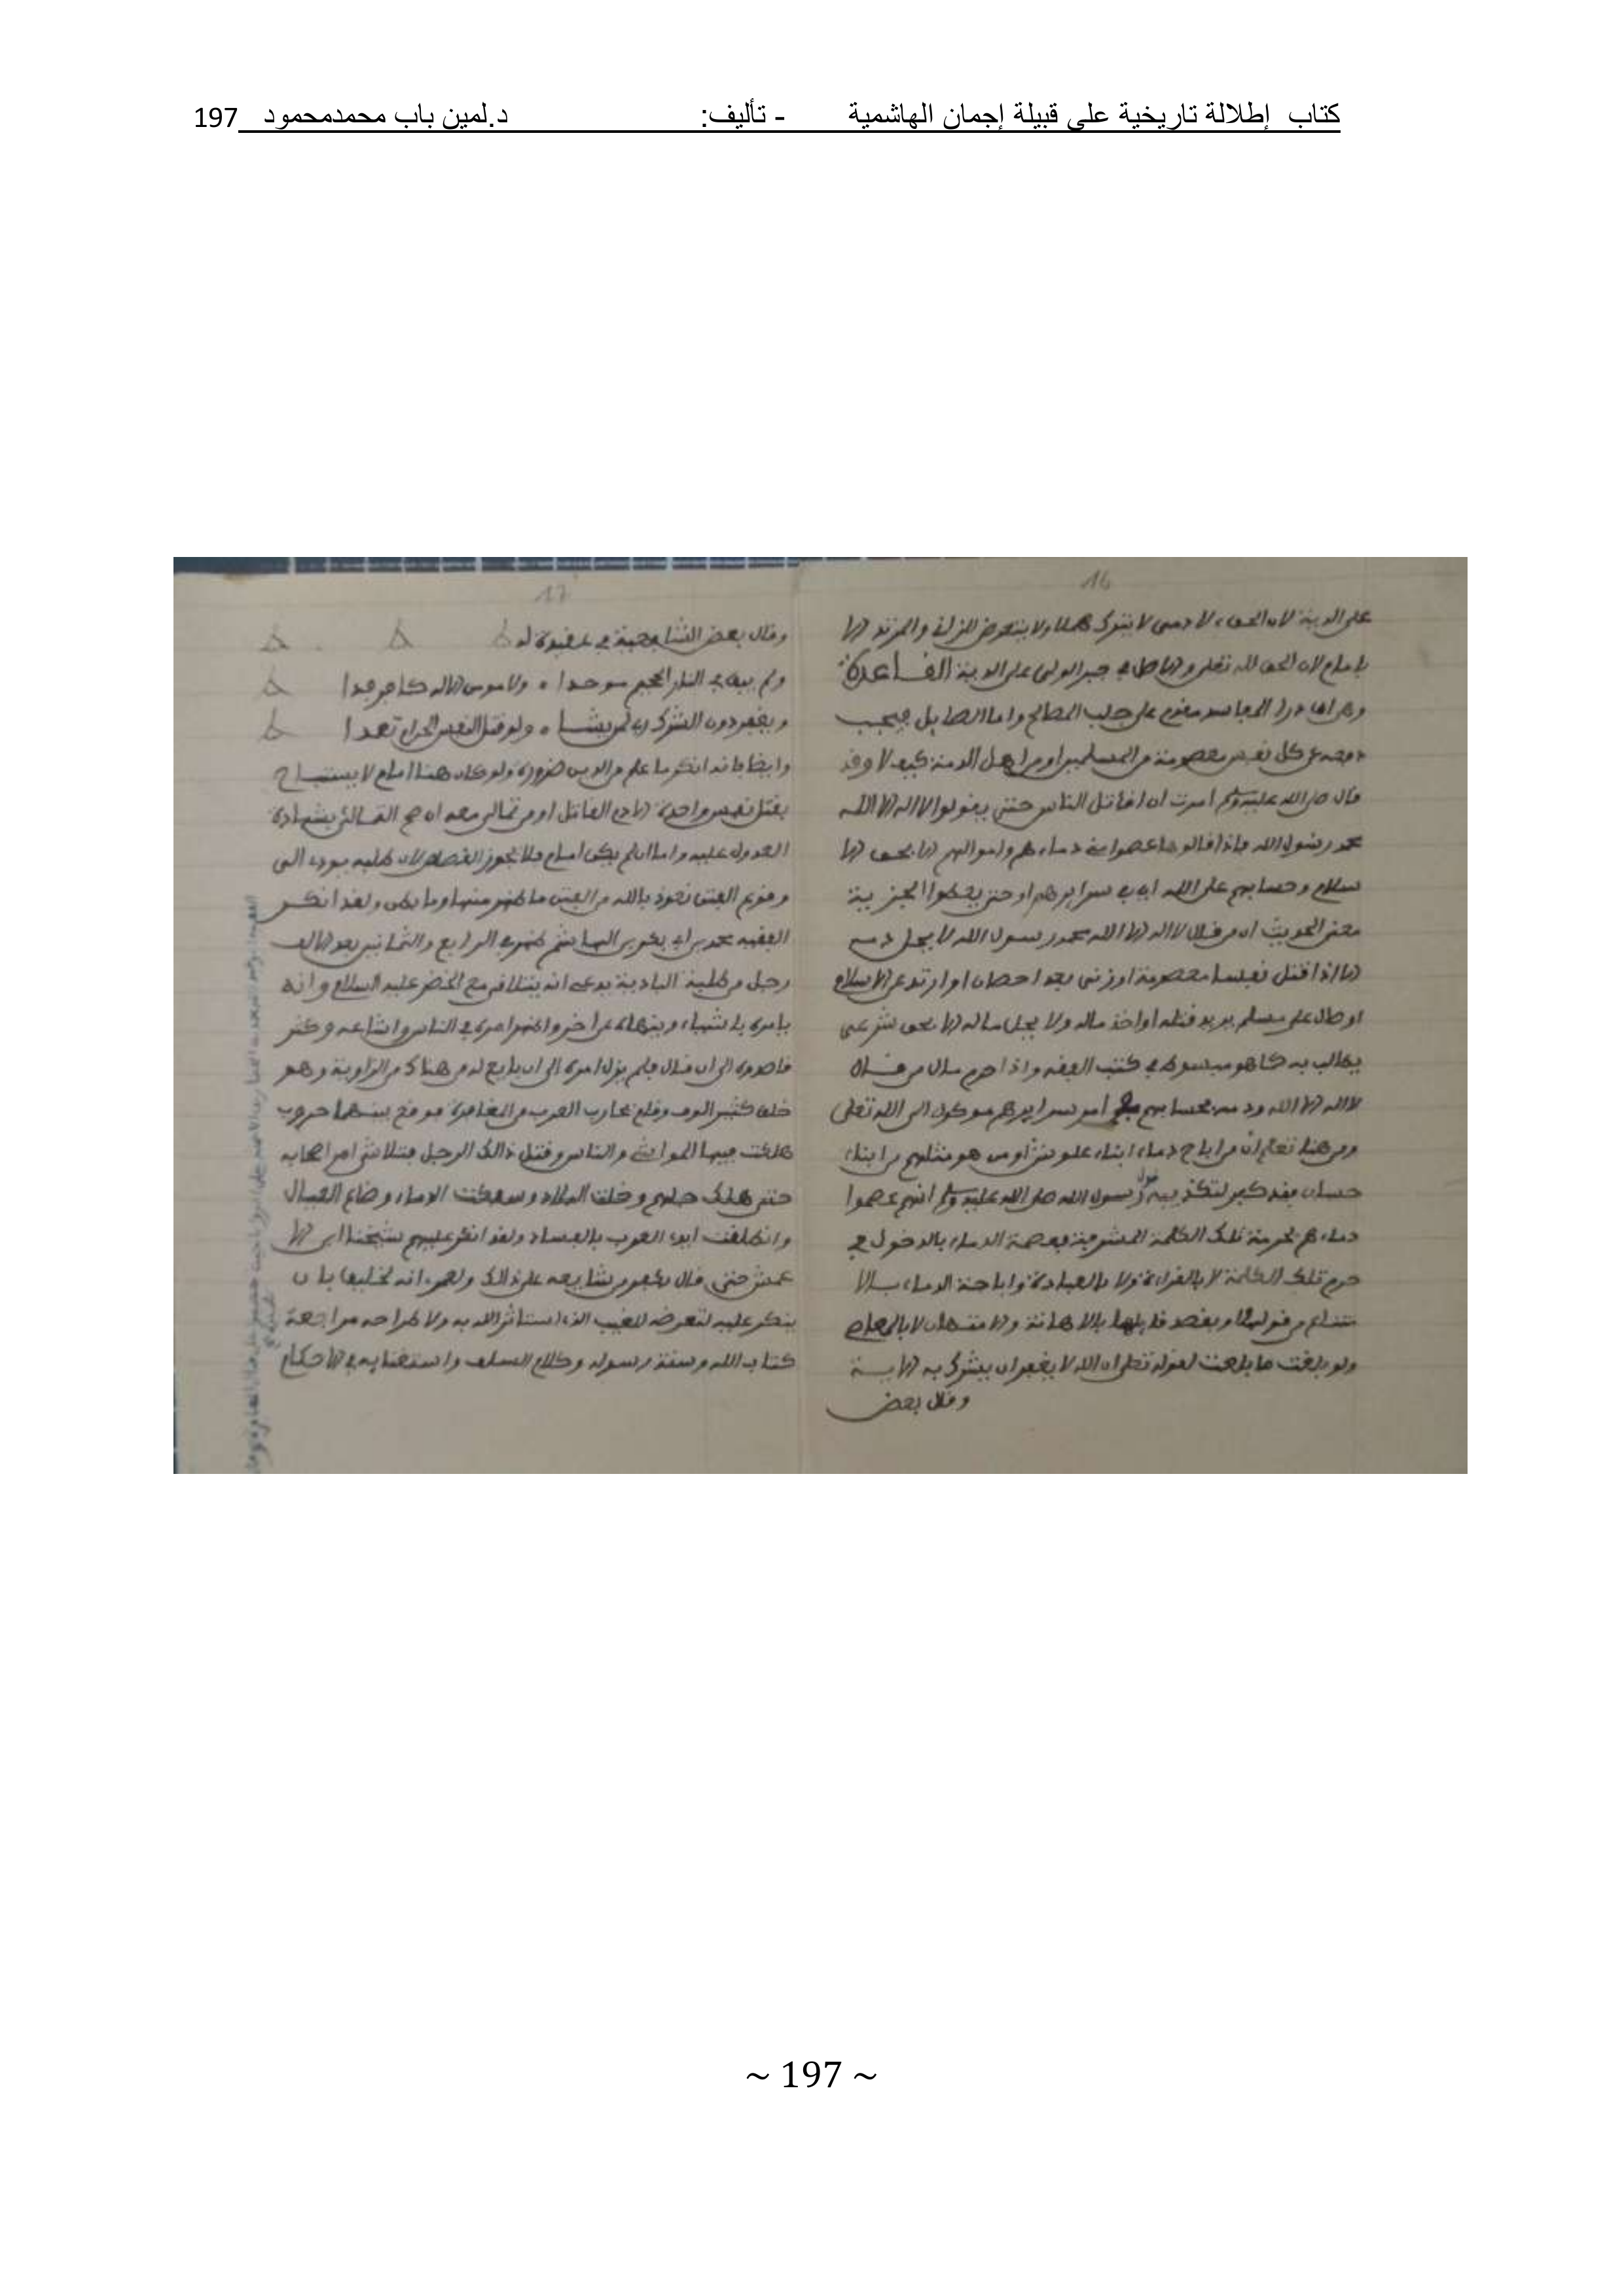 كتاب إطلالة تاريخية على قبيلة إجمان الهاشمية - تأليف: د.لمين باب محمدمحمود 197
16
على الدية لان الحق لادمى لا يترك هملا ولا يتعرض للزلة والمرتد الا
بامام لان الحق لله تعلى جبر الولى على الدية القاعدة
وهى ان درا المفاسد مقدم على جلب المصالح واما الصايل فيجب
دفعه عن كل نفس معصومة من المسلمين او من اهل الذمة كيف لا وقد
قال صلى الله عليه وسلم امرت ان اقاتل الناس حتى يقولوا لا اله الا الله
محمد رسول الله فاذا قالوها عصموا منى دماءهم واموالهم الا بحقها
وحسابهم على الله اى فى سرايرهم او حتى يعطوا الجزية
معنى الحديث ان من قال لا اله الا الله محمد رسول الله لا يحل دمه
الا اذا قتل نفسا معصومة او زنى بعد احصان او ارتد عن الاسلام
او صال على مسلم يريد قتله او اخذ ماله ولا يحل ماله الا بحق شرعى
يطالب به كما هو مبسوط فى كتب الفقه واذا حرم مال من قال
لا اله الا الله ودمه فحسابهم امر سرايرهم موكول الى الله تعلى
ومن هنا تعلم ان من اباح دماء ابناء او من هو مثلهم من ابناء
حسان فقد كفر لتكذيبه قول رسول الله صلى الله عليه وسلم انهم عصموا
دماءهم بحرمة تلك الكلمة المشرفة فعصمة الدماء بالدخول فى
حرم تلك الكلمة لا بالقراءة ولا بالعبادة واباحة الدماء بالا
متناع من قولها او بقصد قايلها بالاهانة والامتهان لا بالمعاصى
ولو بلغت ما بلغت لقوله تعلى ان الله لا يغفر ان يشرك به الاية
وقال بعض
17
وقال بعض الشافعية فى عقيدة له
ولم يبق فى النار الجحيم موحدا ولو قتل النفس الحرام تعمدا
ويغفر دون الشرك ربى لمن يشا
وايضا فانه انكر ما علم من الدين ضرورة ولو كان هنا امام لا يستباح
بقتل نفس واحدة الا دم القاتل او من تمالى معه ان صح التمالئ بشهادة
العدول عليه واما ان لم يكن امام فلا يجوز القصاص لان طلبه يودى الى
وقوع الفتن نعوذ بالله من الفتن ما ظهر منها وما بطن ولقد انكر
الفقيه محمد بن الهاشم ظهر فى الرابع والثمانين بعد الالف
رجل من طلبة البادية يدعى انه يتلاقى مع الخضر عليه السلام وانه
يامره باشياء وينهاه عن اخر واظهر امره فى الناس واشاعه وكثر
قاصدوه الى ان قال فلم يزل امره الى ان بايع له من هناك من الزاوية وهو
خلق كثير الوف وقام يحارب العرب والمغافرة فوقع بينهما حروب
هلكت فيها المواشى والناس وقتل ذالك الرجل فتلاشى امر اصحابه
حتى هلك جلهم وخلت البلاد وسفكت الدماء وضاع العيال
وانطلقت ايدى العرب بالفساد ولقد انكر عليهم شيخنا ابن الا
عمش حتى قال بكفر من شايعه على ذالك ولعمرى انه لخليق بان
ينكر عليه لتعرضه للغيب الذى استاثر الله به ولاطراحه مراجعة
كتاب الله وسنة رسوله وكلام السلف واستغنايه فى الاحكام
~ 197 ~